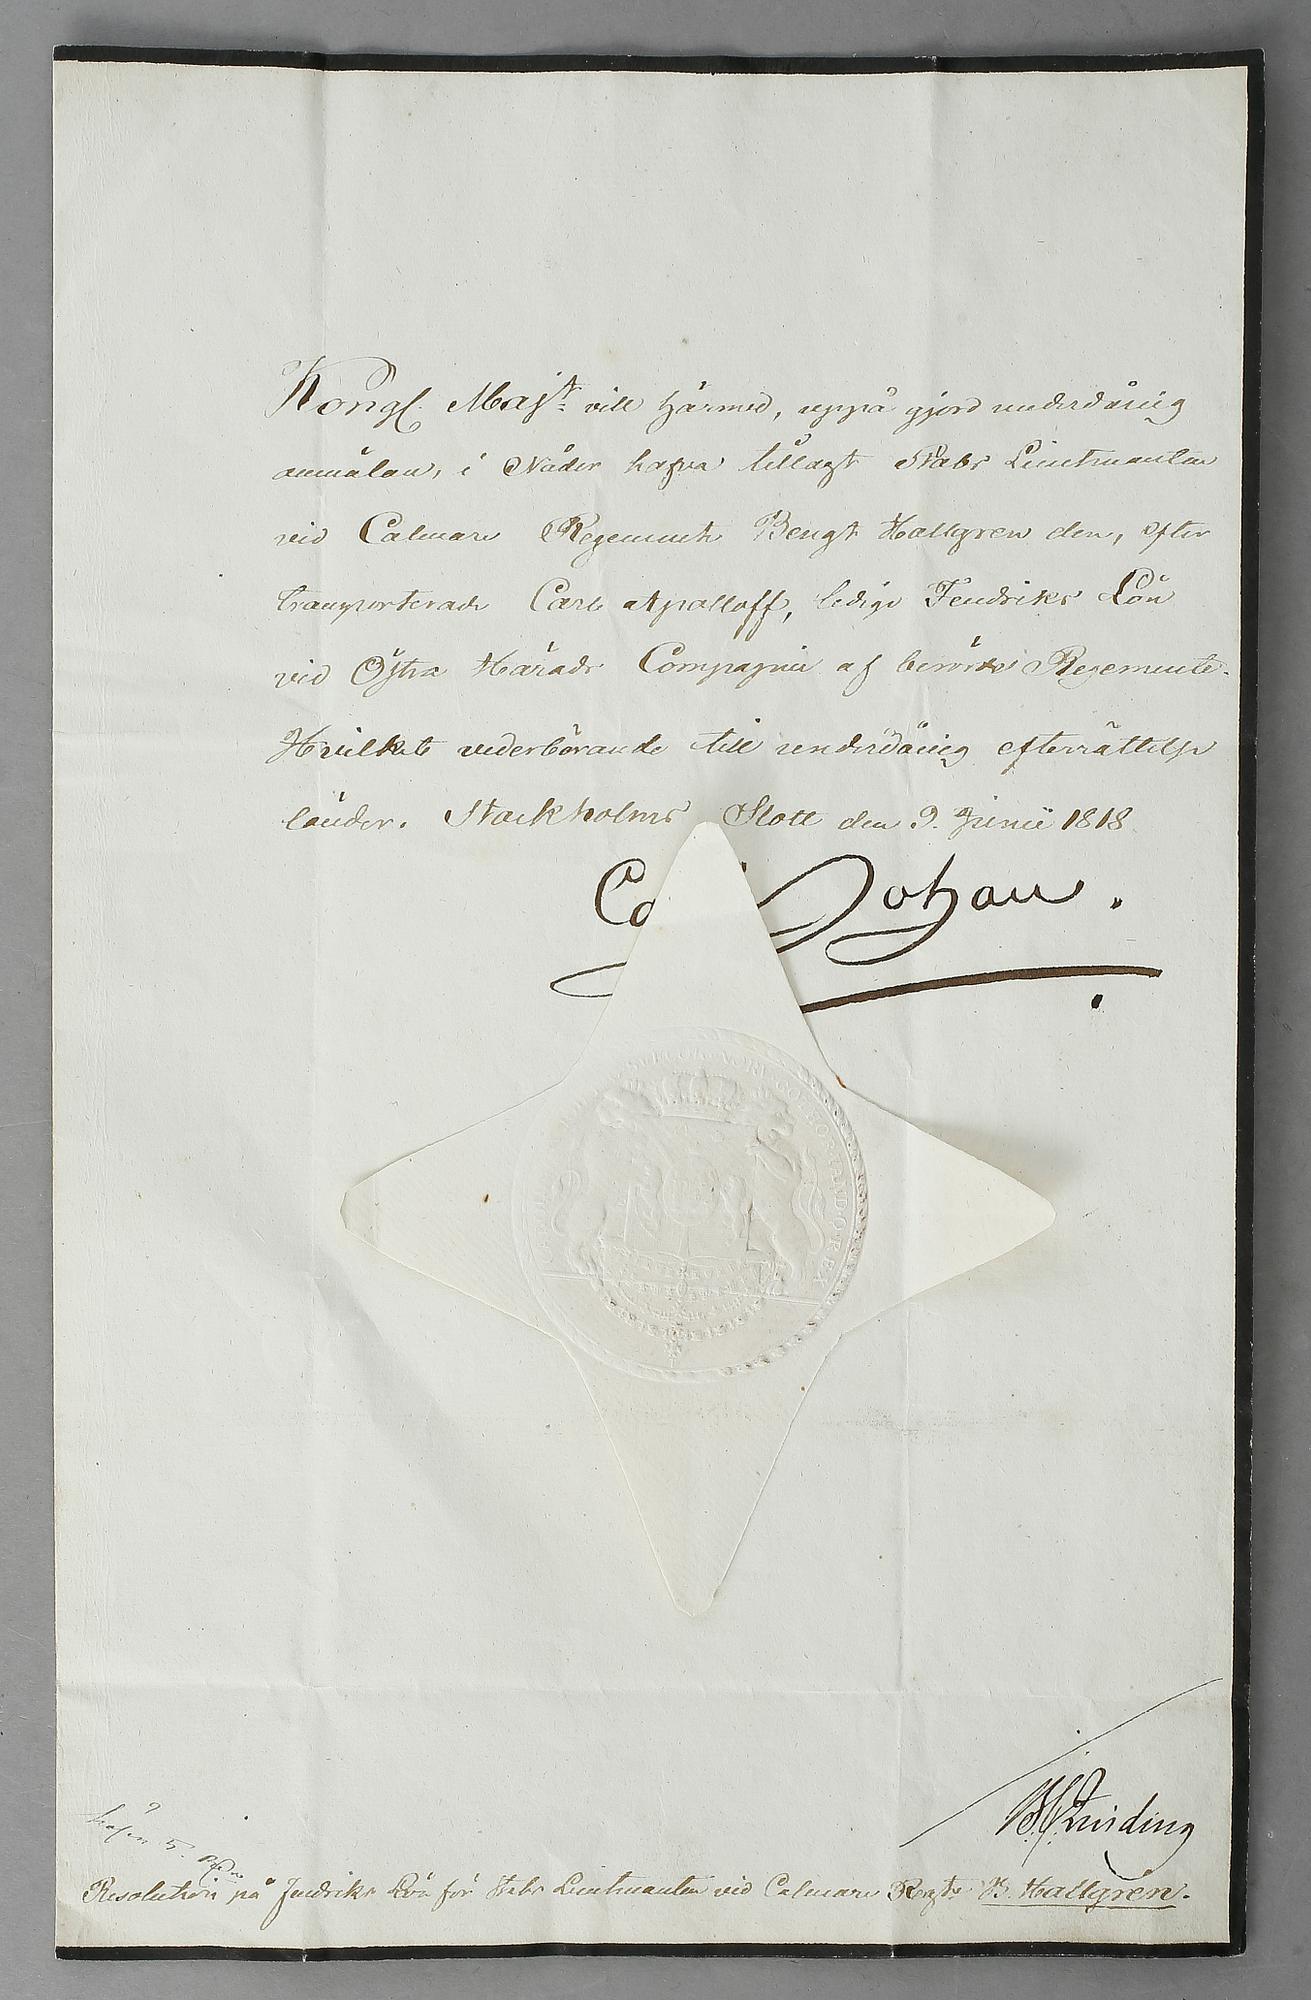 Kongl. Maj:t vill härmed, uppå gjord underdånig
anmälan, i Nåder hafva tillagt Stabs Lieutnanten
vid Calmare Regemente Bengt Hallgren den, efter
transporterade Carl Apolloff, lediga Fendriks Lön
vid Östra Härads Compagnie af berörde Regemente.
Hvilket vederbörande till underdånig efterrättelse
länder. Stockholms Slott den 9. Junii 1818
Ca Johan.
NORV. GOTH. VAND. REX
Quiding
Resolution på Fendriks Lön för Stabs Lieutnanten vid Calmare Regte B. Hallgren.